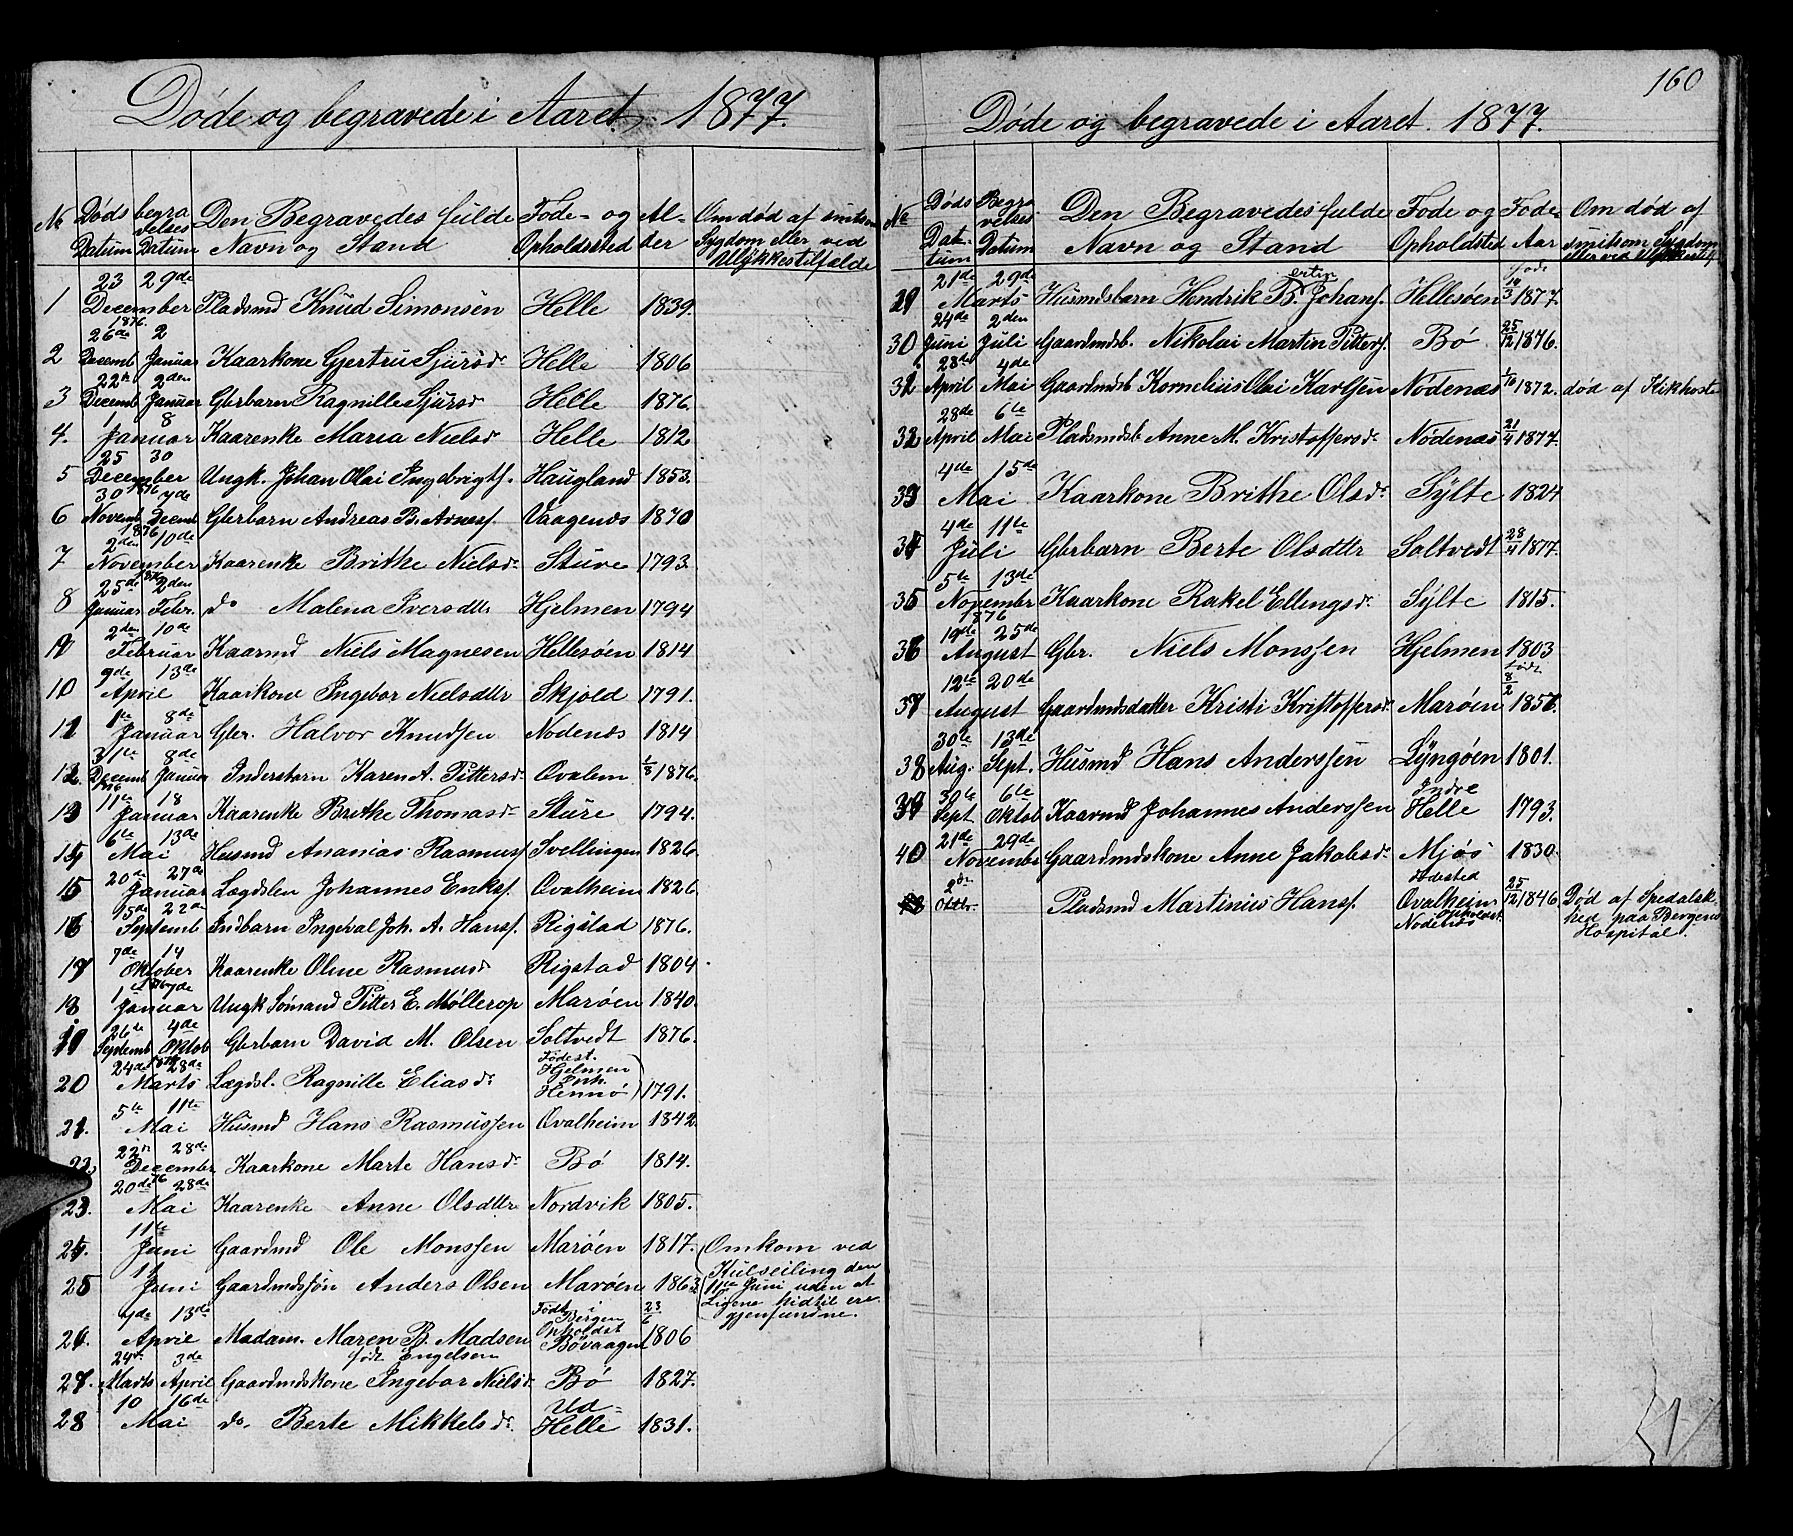 Døde og begravede i Aaret 1877.
№ Døds Datum begravelses Datum Den Begravedes fulde Navn og Stand Føde- og Opholdssted Alder Om død af smitsom Sygdom eller ved Ulykkestilfælde
1 23 December 1876 29de Pladsmd Knud Simonsen Helle 1839.
2 26de Decemb 2 Januar Kaarkone Gjertru Sjursdr Helle 1806
3 22n Decemb 2den Januar Gbrbarn Ragnille Sjursdr Helle 1876.
4. 1 8 Januar Kaarenke Maria Nielsdr Helle 1812
5 25 30 December 1876 Ungk. Johan Olai Ingebrigts. Haugland 1853.
6 30 Novemb 7de Decemb 1876 Gbrbarn Andreas B. Arness. Vaagenæs 1870
7 2den 10de November 1876 Kaarenke Brithe Nielsdr Sture 1793.
8 25de Januar 2den Febr. do Malena Iversdtr Hjelmen 1794
9 2den 10de Februar Kaarmd Niels Magnesen Hellesøen 1814
10 9de 13de April Kaarkone Ingebor Nielsdtr Skjold 1791.
11 1te 8de Januar Gbr. Halvor Knudsen Nodenæs 1814
12 31te Decemb 1876 8de Januar Inderstbarn Karen A. Pittersdr Ovalem 1/8 1876.
13 11te 18 Januar Kaarenke Brithe Thomasdr Sture 1794.
14 6te 13de Mai Husmd Ananias Rasmuss. Svellingen 1826.
15 20de 27de Januar Lægdslem Johannes Eriks. Ovalheim 1826
16 15de 22de Septemb Indbarn Ingeval Joh. A. Hans. Rigstad 1876.
17 7de 14 Oktober 1876 Kaarenke Oline Rasmusdr Rigstad 1804.
18 1 7de Januar Ungk Sømand Pitter E. Møllerop Marøen 1840.
19 26de Septemb 4de Oktob 1876 Gbrbarn David M. Olsen Soltvedt 1876.
20 24de 28de Marts Lægdsl. Ragnille Eliasdr Fødest. Hjelmen Hennø 1791.
21. 5te 11te Mai Husmd Hans Rasmussen Ovalheim 1842.
22. 22n 28de December 76 Kaarkone Marte Hansdr Bø 1814.
23. 20de 28de Mai Kaarenke Anne Olsdtr Nordvik 1805.
24. 11te Juni Gaardmd Ole Monssen Marøen 1817. Omkom ved
25 11 Juni Gaardmdssøn Anders Olsen Marøen 1863 Kulseiling den 11te Juni uden at Ligene hidtil ere gjenfundne.
26. 7de 13de April Madam. Maren B. Madsen født Engelsen Født i Bergen Opholdst Bøvaagen 23/6 1806
27. 24de Marts 3de April Gaardmdskone Ingebor Nielsdr Bø 1827.
28 10 16de Mai do. Berte Mikkelsdr. Ud-Helle 1831.
160
Døde og begravede i Aaret 1877.
№ Døds Datum Begravelses Datum Den Begravedes fulde Navn og Stand Føde og Opholdsted Føde-Aar Om død af smitsom Sygdom eller ved Ulykkestilf.
29 21de 29de Marts Husmdsbarn Hendrik B. Johans. Hellesøen født 14/3 1877.
30 24de Juni 2den Juli Gaardmdsb. Nikolai Martin Pitters. Bø 25/12 1876.
31 28de April 4de Mai Gaardmdsb Kornelius Olai Karlsen Nodenæs 1/10 1872. død af Kikhoste
32 28de April 6te Mai Pladsmdsb Anne M. Kristoffersdr Nødenæs 21/4 1877.
33 4de 15de Mai Kaarkone Brithe Olsdr Sylte 1824
34 4de 11te Juli Gbrbarn Berte Olsdtr Soltvedt 28/4 1877.
35 5te 13de Novembr 1876 Kaarkone Rakel Ellingsdr Sylte 1815.
36 19de 25de August Gbr. Niels Monssen Hjelmen 1803
37 12te 20de August Gaardmdsdatter Kristi Kristoffersdr Marøen født 8/2 1857.
38 30te Aug. 13de Sept. Husmd Hans Anderssen Lyngøen 1801.
39 30te Sept 6te Oktob Kaarmd Johannes Anderssen Indre Helle 1793.
40 21de 29de Novembr Gaardmdskone Anne Jakobsdr Mjøs 1830.
2den Oktbr. Pladsmd Martinius Hans. Fødested Ovalheim Opholdst. Nodenæs 25/12 1846. Død af Spedalsk-
hed paa Bergens
Hospital.